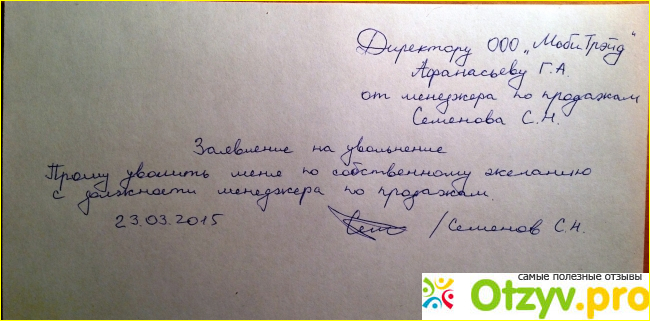 Директору ООО „МобиТрэйд"
Афанасьеву Г.А.
от менеджера по продажам
Семенова С.Н.
Заявление на увольнение
Прошу уволить меня по собственному желанию
с должности менеджера по продажам.
23.03.2015 /Семенов С.Н.
самые полезные отзывы
Otzyv.pro